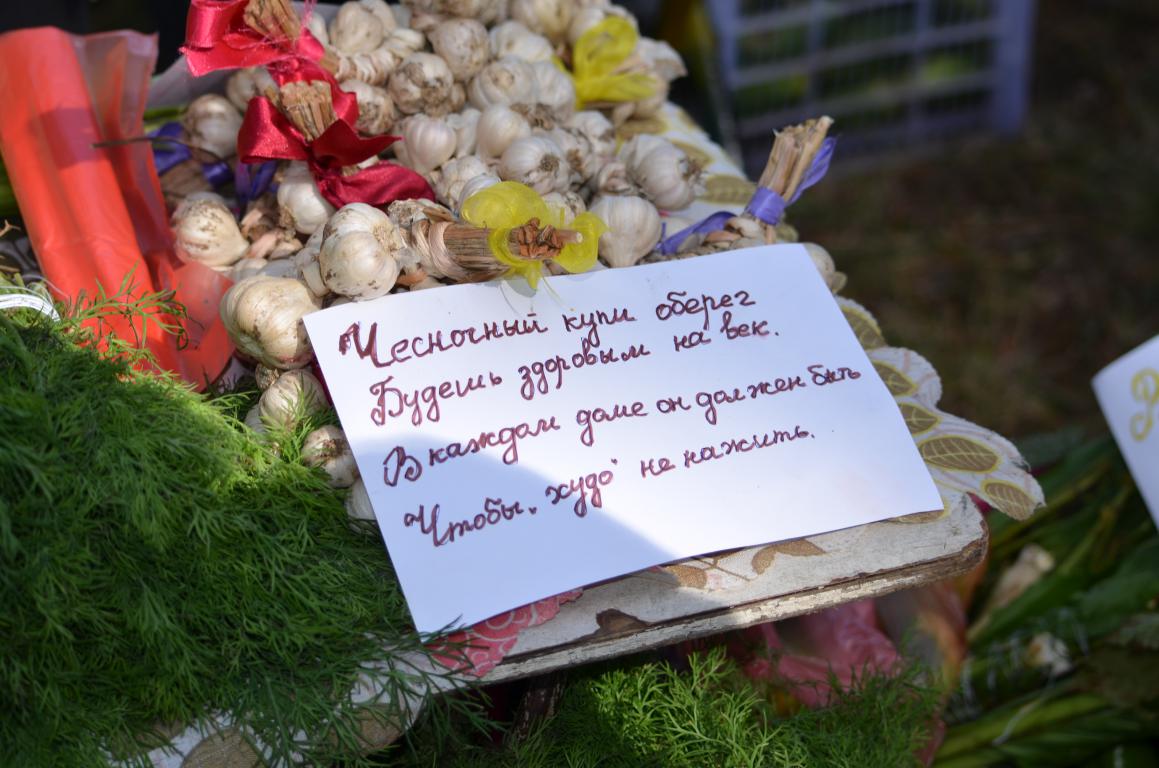 Чесночный купи оберег
Будешь здоровым на век.
В каждом доме он должен быть
Чтобы „худо" не нажить.